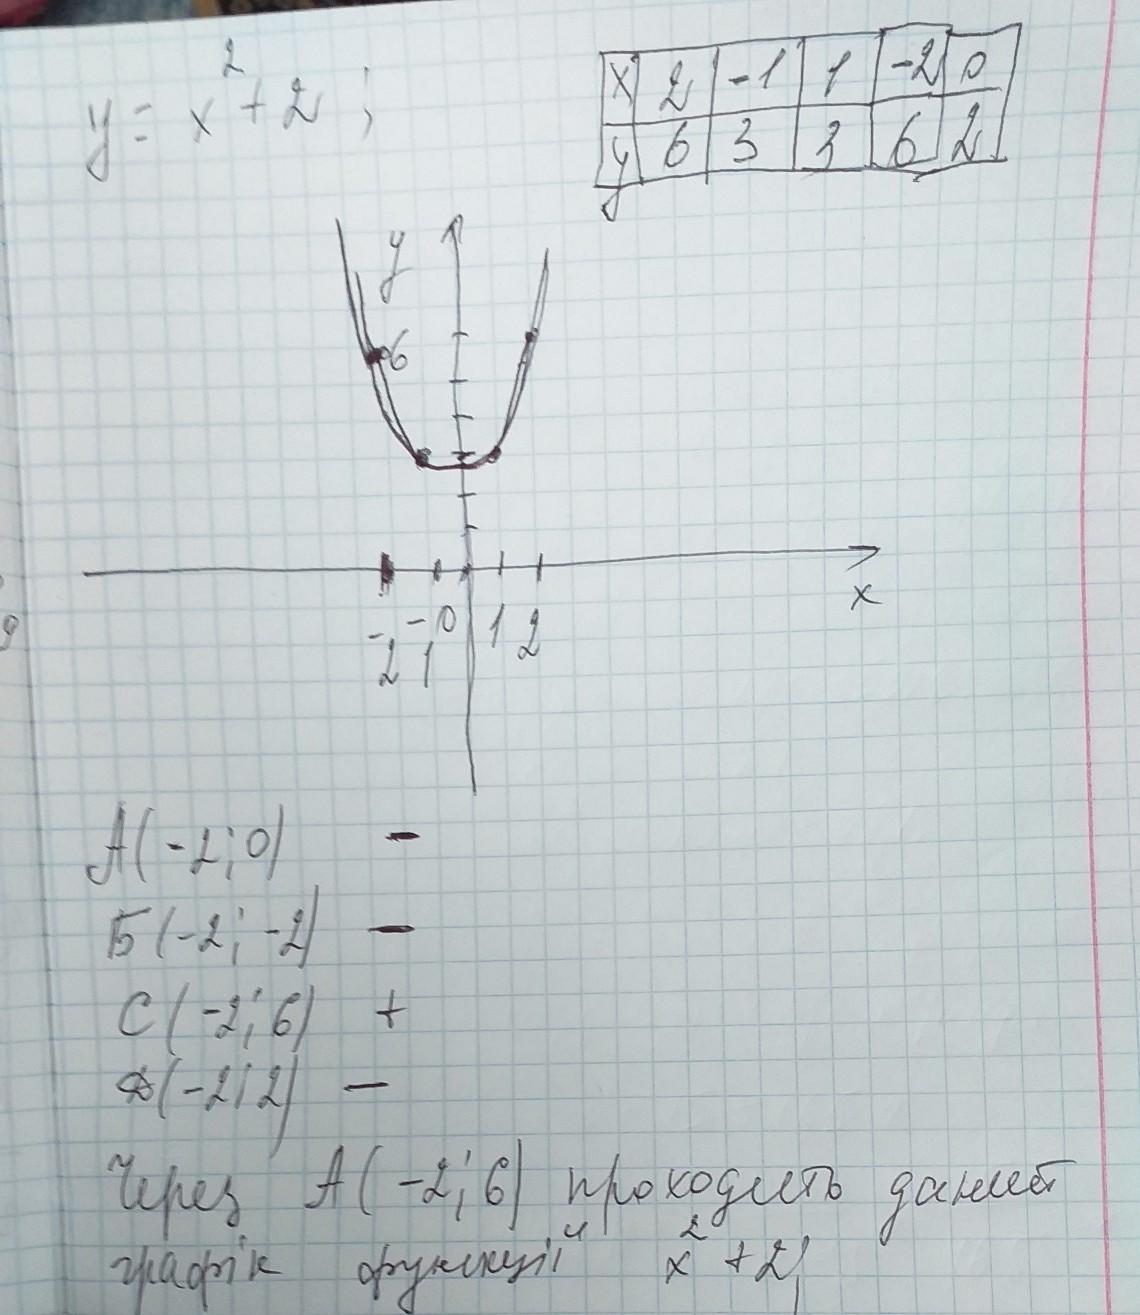 y = x² + 2;
x 2 -1 1 -2 0
y 6 3 3 6 2
y
6
-2 -1 0 1 2
x
А(-2; 0) -
Б(-2; -2) -
С(-2; 6) +
Д(-2; 2) -
Через А(-2; 6) проходить даний
графік функції x² + 2;